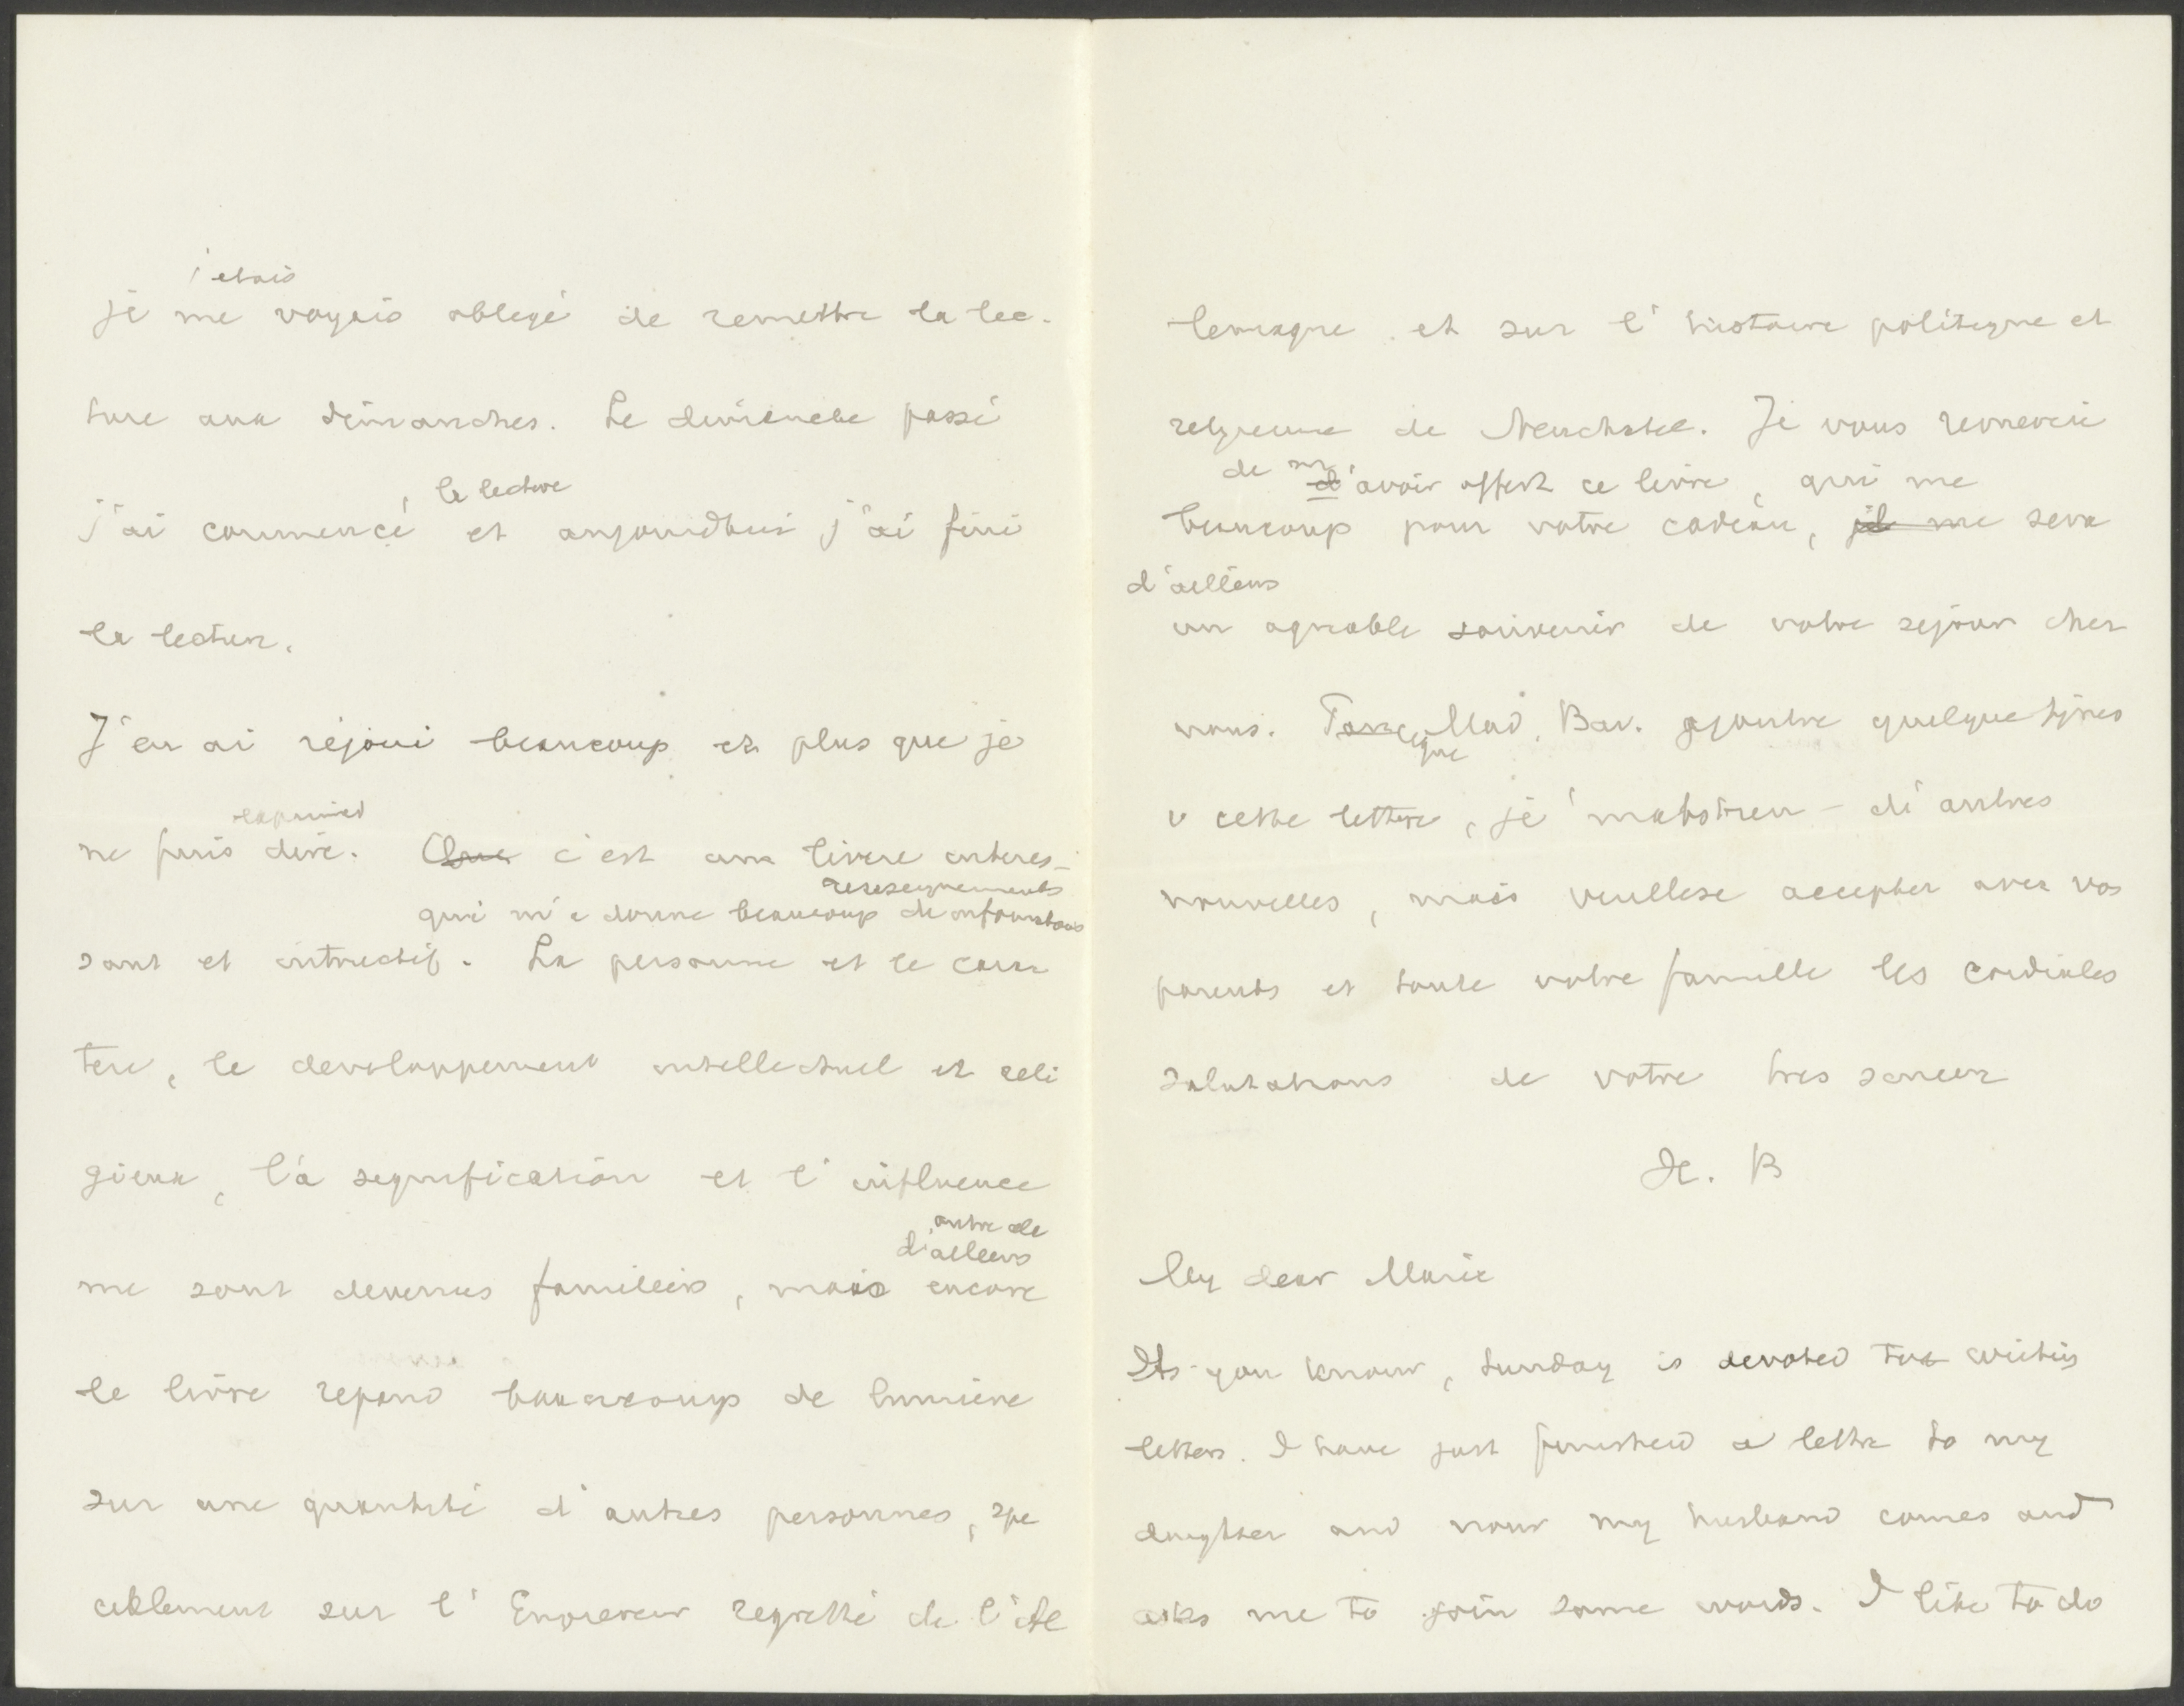 j'etais
je me voyais obligé de remettre la lec-
ture aux dimanches. Le dimanche passé
, la lecture
j'ai commencé et aujourdhui j'ai fini
la lecture.
J'en ai rejoui beaucoup et plus que je
exprimer
ne puis dire. Que c'est un livre interes-
renseignements
qui m'a donne beaucoup de informations
sant et intructif. La personne et le carac
tere, le developpement intellectuel et reli
gieux, la signification et l'influence
outre de
d'ailleurs
me sont devenus familiers, mais encore
le livre repand beaucoup de lumiere
sur une quantité d'autres personnes, spe
cialement sur l'Empereur regretté de l'Al
lemagne et sur l'histoire politique et
religieuse de Neuchatel. Je vous remercie
de m'avoir offert ce livre, qui me
beaucoup pour votre cadeau, il me sera
d'ailleurs
un agreable souvenir de votre sejour chez
nous. Mad. Bav. ajoutre quelque lignes
que
a cette lettre, je m'abstiens d'autres
nouvelles, mais veullese accepter avec vos
parents et toute votre famille les cordiales
salutations de votre tres sincer
H. B
My dear Marie
As you know, Sunday is devoted to writing
letters. I have just finished a letter to my
daughter and now my husband comes and
asks me to join some words. I like to do